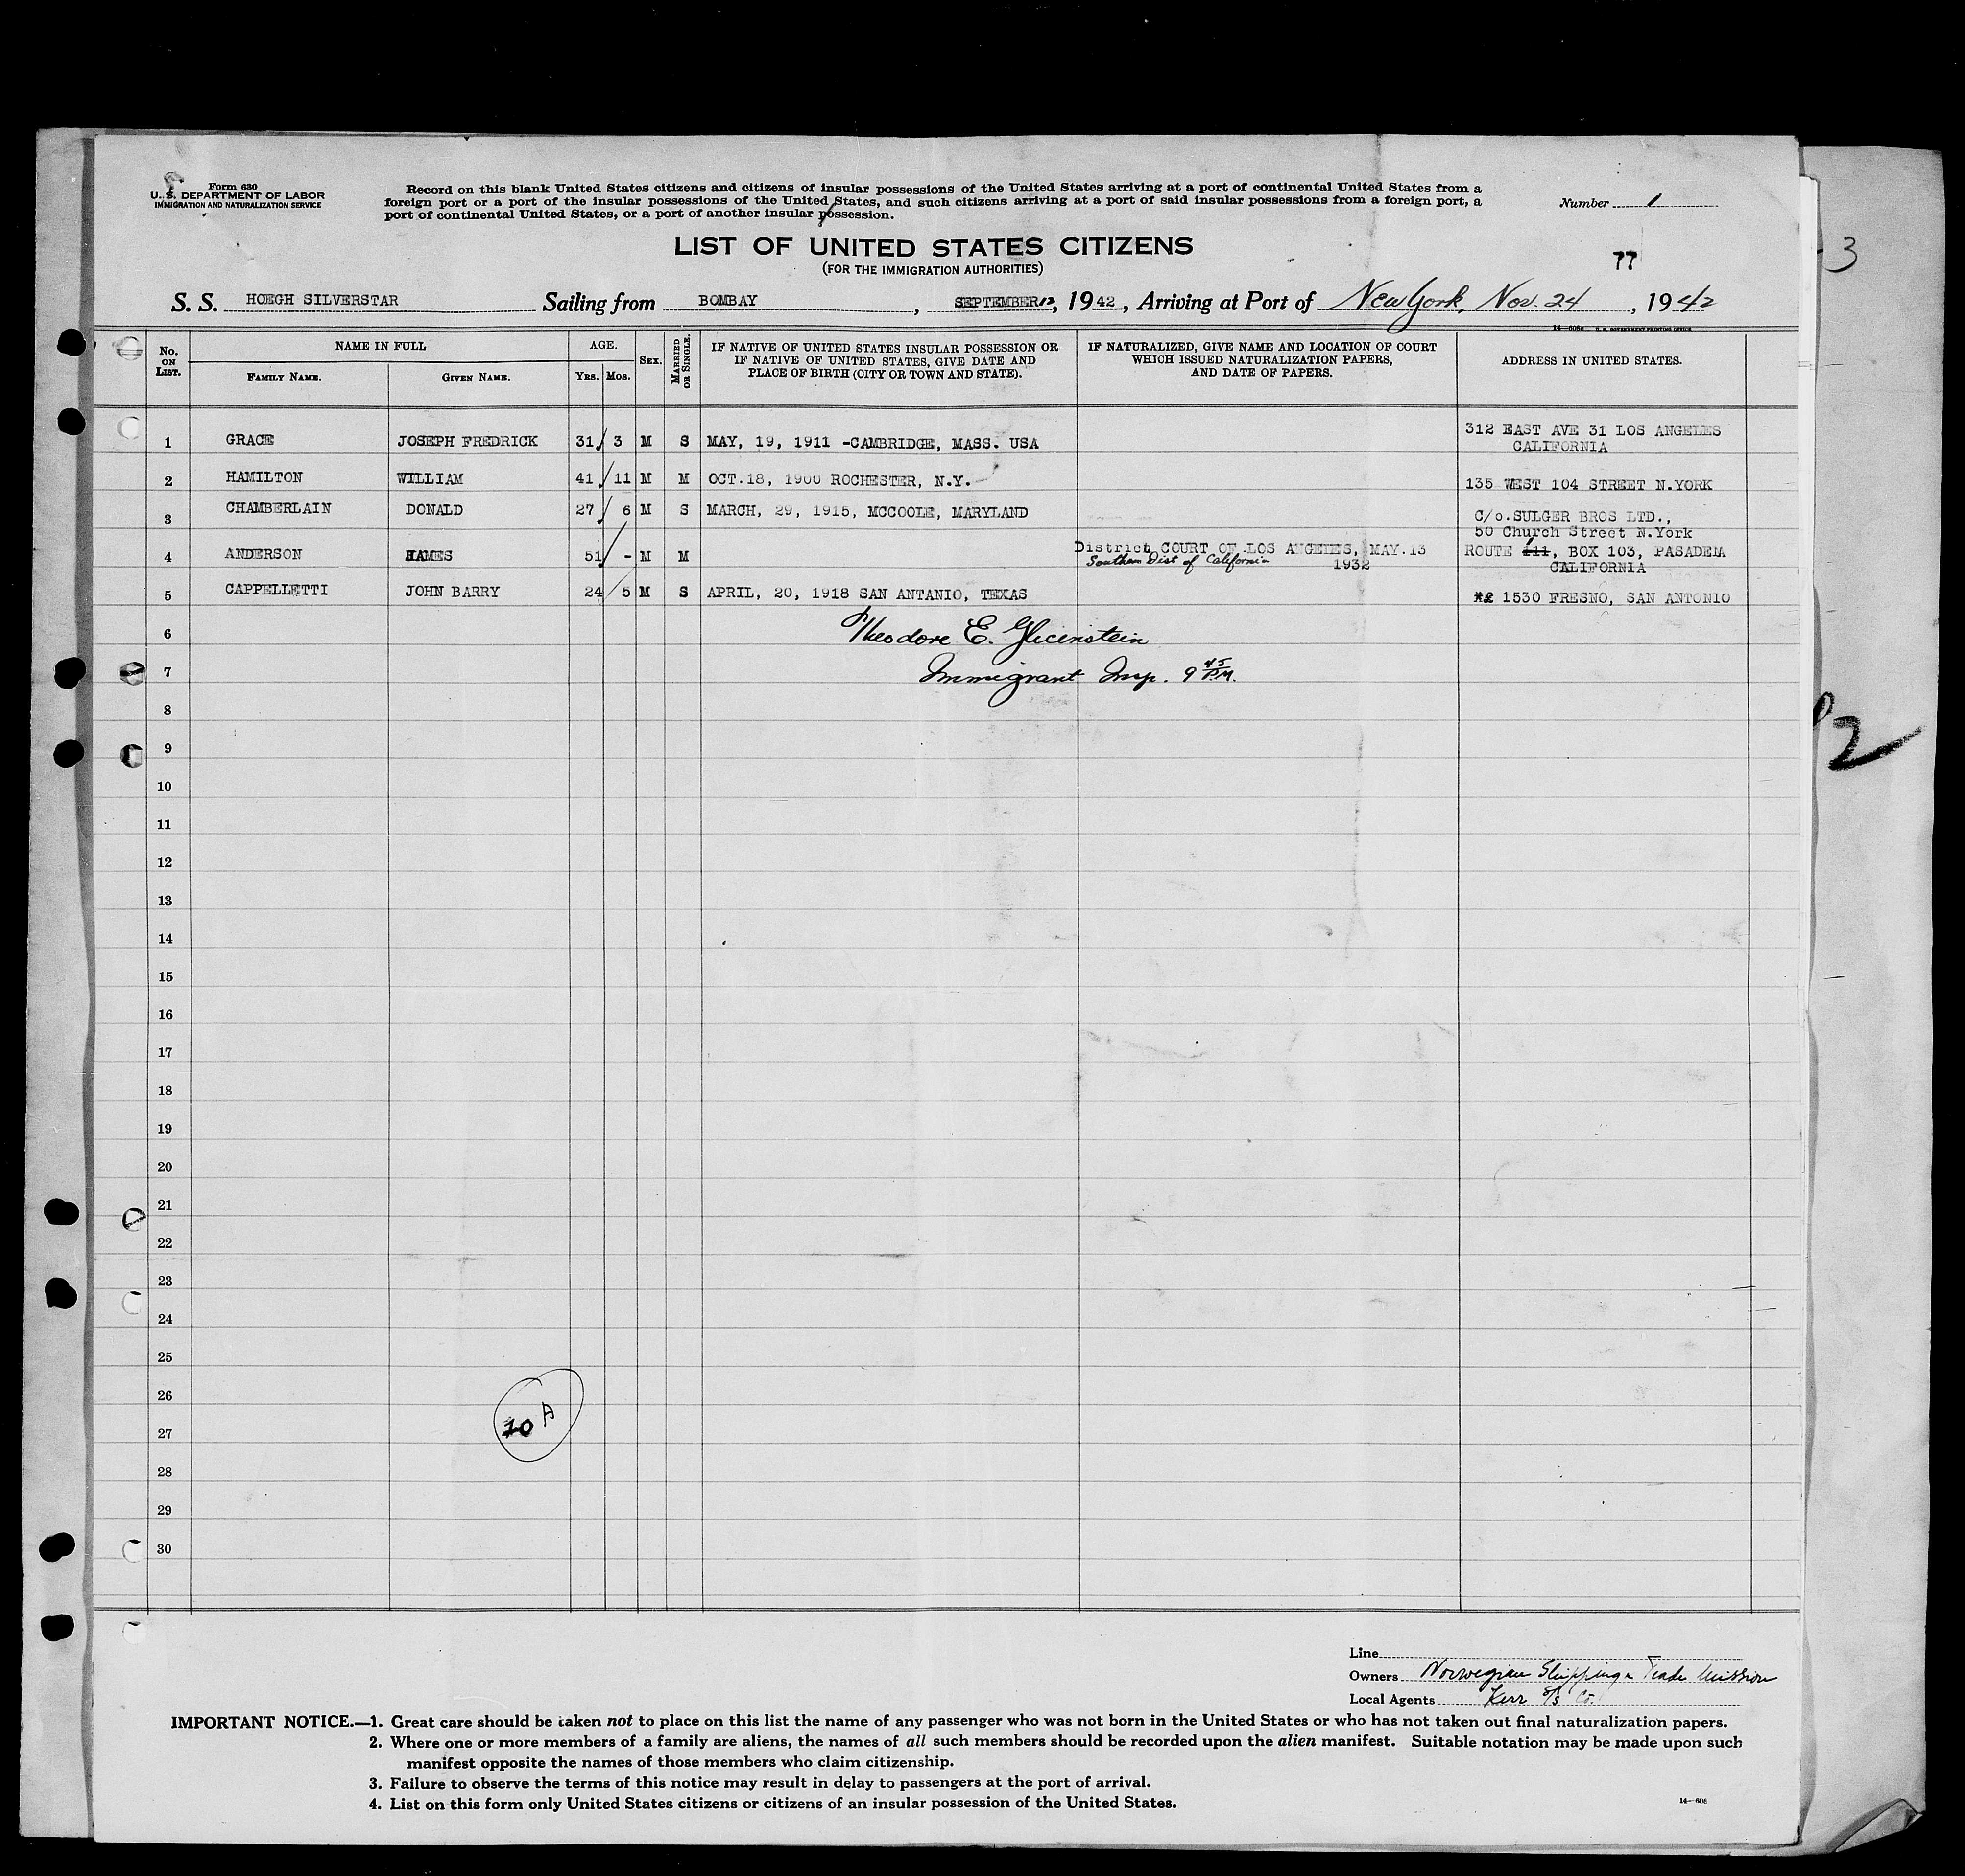 Form 630
U. S. DEPARTMENT OF LABOR
IMMIGRATION AND NATURALIZATION SERVICE
Record on this blank United States citizens and citizens of insular possessions of the United States arriving at a port of continental United States from a
foreign port or a port of the insular possessions of the United States, and such citizens arriving at a port of said insular possessions from a foreign port, a
port of continental United States, or a port of another insular possession.
Number 1
LIST OF UNITED STATES CITIZENS
(FOR THE IMMIGRATION AUTHORITIES)
77
3
S. S. HOEGH SILVERSTAR Sailing from BOMBAY, SEPTEMBER 12, 1942, Arriving at Port of New York, Nov. 24, 1942
No. ON LIST. NAME IN FULL FAMILY NAME. GIVEN NAME. AGE. Yrs. Mos. SEX. MARRIED OR SINGLE.
IF NATIVE OF UNITED STATES INSULAR POSSESSION OR
IF NATIVE OF UNITED STATES, GIVE DATE AND
PLACE OF BIRTH (CITY OR TOWN AND STATE).
IF NATURALIZED, GIVE NAME AND LOCATION OF COURT
WHICH ISSUED NATURALIZATION PAPERS,
AND DATE OF PAPERS.
ADDRESS IN UNITED STATES.
1 GRACE JOSEPH FREDRICK 31 3 M S MAY, 19, 1911 -CAMBRIDGE, MASS. USA 312 EAST AVE 31 LOS ANGELES
CALIFORNIA
2 HAMILTON WILLIAM 41 11 M M OCT.18, 1900 ROCHESTER, N.Y. 135 WEST 104 STREET N.YORK
3 CHAMBERLAIN DONALD 27 6 M S MARCH, 29, 1915, MCCOOLE, MARYLAND C/o.SULGER BROS LTD.,
50 Church Street N.York
4 ANDERSON JAMES 51 - M M District COURT OF LOS ANGELES, MAY.13 ROUTE 1, BOX 103, PASADENA
Southern Dist of California 1932 CALIFORNIA
5 CAPPELLETTI JOHN BARRY 24 5 M S APRIL, 20, 1918 SAN ANTANIO, TEXAS 1530 FRESNO, SAN ANTONIO
6 Theodore E. Glicenstein
7 Immigrant Insp. 9 45 P.M.
8
2
9
10
11
12
13
14
15
16
17
18
19
20
21
22
23
24
25
26
10 A
27
28
29
30
Line
Owners Norwegian Shipping & Trade Mission
Local Agents Kerr S/S Co.
IMPORTANT NOTICE.—1. Great care should be taken not to place on this list the name of any passenger who was not born in the United States or who has not taken out final naturalization papers.
2. Where one or more members of a family are aliens, the names of all such members should be recorded upon the alien manifest. Suitable notation may be made upon such
manifest opposite the names of those members who claim citizenship.
3. Failure to observe the terms of this notice may result in delay to passengers at the port of arrival.
4. List on this form only United States citizens or citizens of an insular possession of the United States.